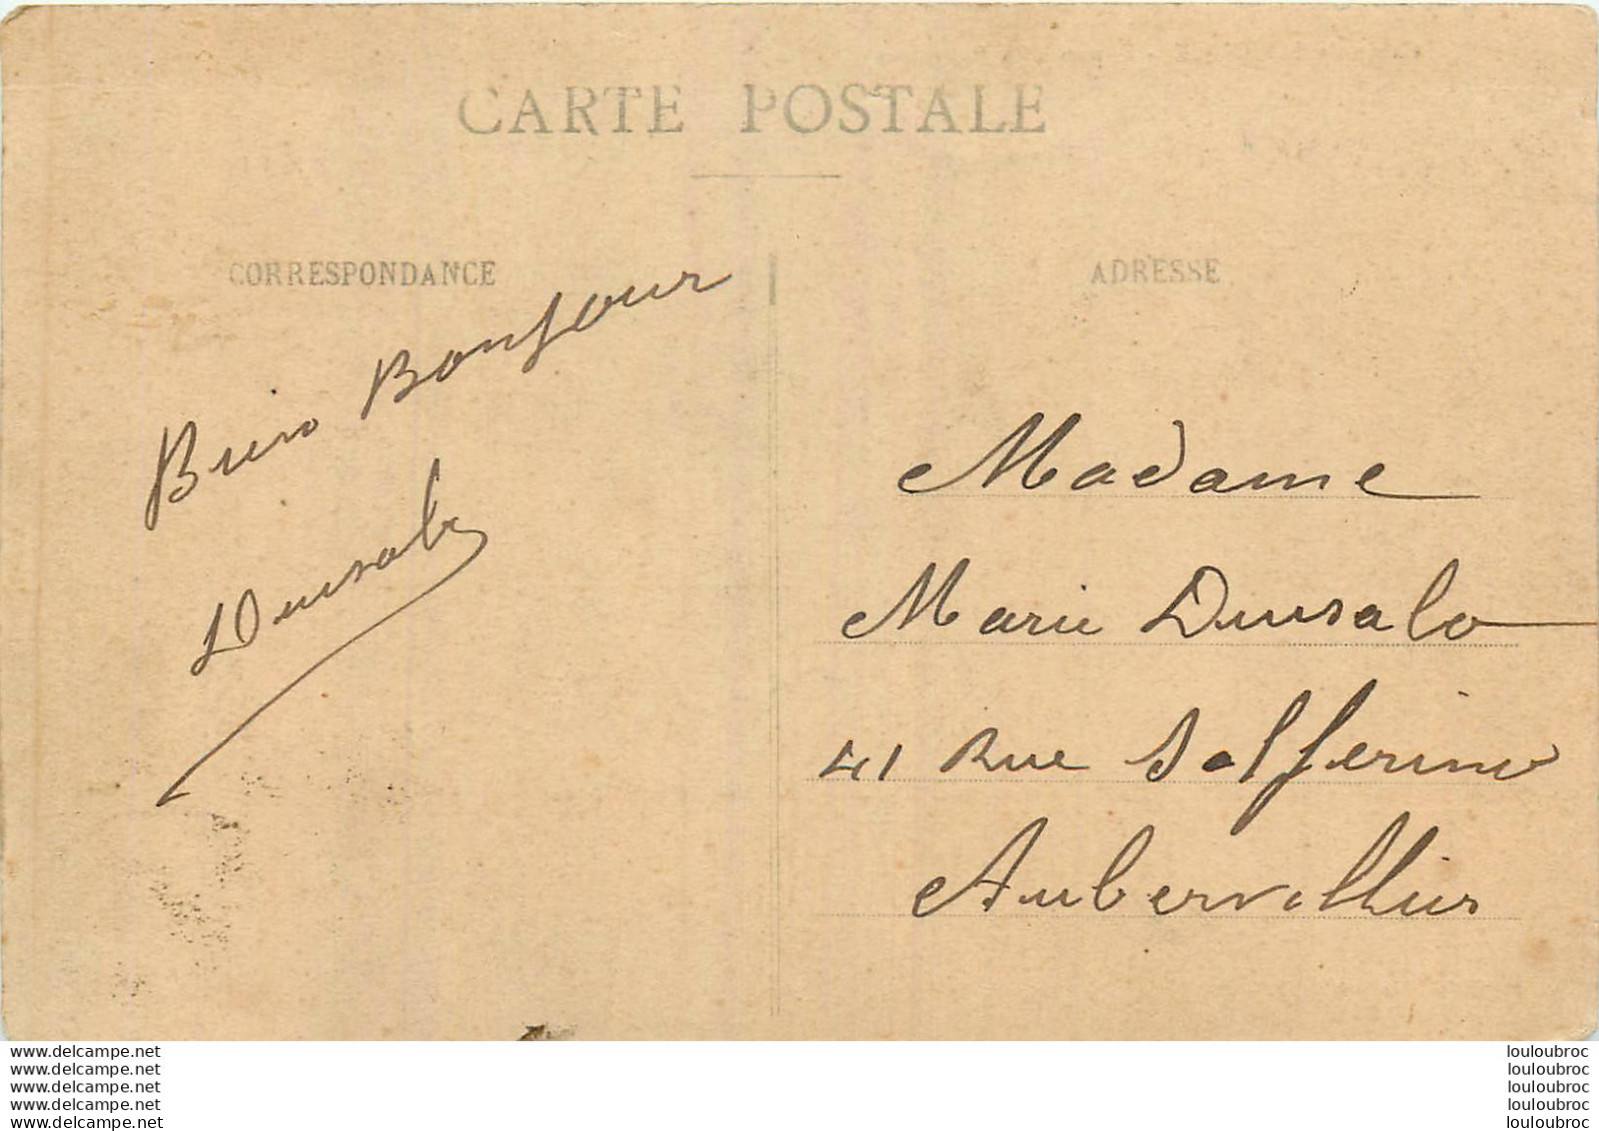 CARTE POSTALE
CORRESPONDANCE
ADRESSE
Bien Bonjour
Dursalo
Madame
Marie Dursalo
41 Rue Solferino
Aubervilliers
www.delcampe.net
www.delcampe.net
www.delcampe.net
www.delcampe.net
www.delcampe.net
louloubroc
louloubroc
louloubroc
louloubroc
louloubroc